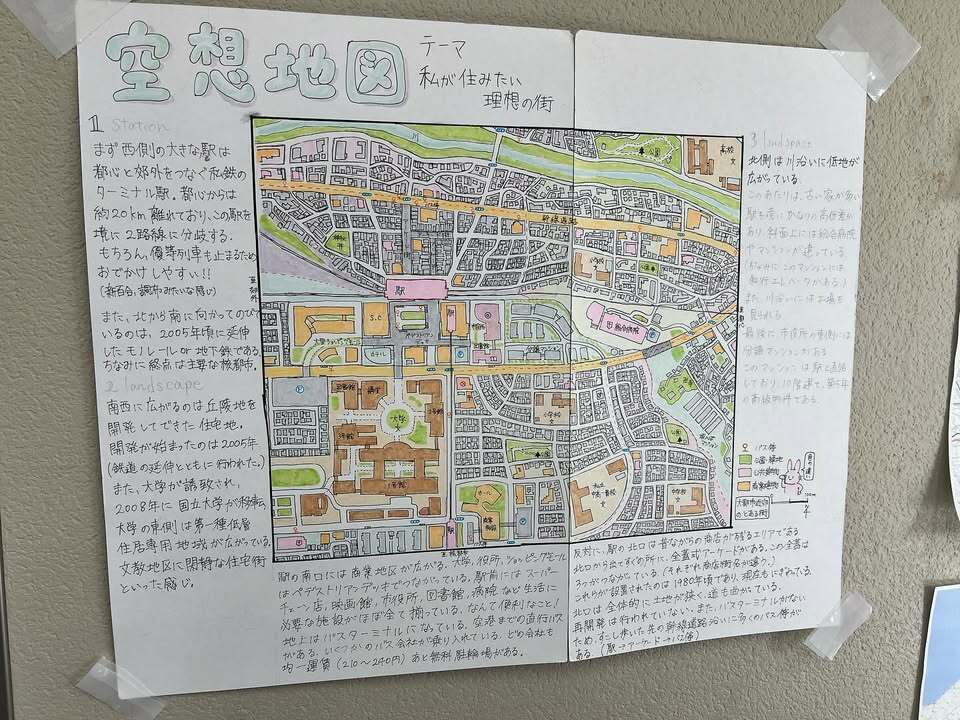 空想地図
テーマ
私が住みたい
理想の街
1 station
まず西側の大きな駅は
都心と郊外をつなぐ私鉄の
ターミナル駅。都心からは
約20km離れており、この駅を
境に2路線に分岐する。
もちろん、優等列車も止まるため
おでかけしやすい!!
(新百合、調布みたいな感じ)
また、北から南に向かってのびて
いるのは、2005年頃に延伸
したモノレールor地下鉄である。
ちなみに終点は主要な核都市。
2 landscape
南西に広がるのは丘陵地を
開発してできた住宅地。
開発が始まったのは2005年
(鉄道の延伸とともに行われた。)
また、大学が誘致され、
2008年に国立大学が移転
大学の東側は第一種低層
住居専用地域が広がっている。
文教地区に閑静な住宅街
といった感じ。
川
公園
高校
文
幹線道路
小学校
文
駅
S.C.
ホテル
総合病院
分譲マンション
大学
3号館
1号館
小学校
文
ホール
中学校
文
駅
3 landspace
北側は川沿いに低地が
広がっている。
このあたりは、古い家が多い
あり、斜面上には総合病院
やマンションが建っている。
(ちなみにこのマンションには
斜行エレベータがある)
また、川沿いにはお墓も
見られる
最後に市役所の東側には
分譲マンションがある
このマンションは駅と直結
しており、
の高級物件である。
バス停
公園・緑地
公共建物
商業建物
大都市近郊
のとある街
駅の南口には商業地区が広がる。大学、役所、ショッピングモール
はペデストリアンデッキでつながっている。駅前にはスーパー
チェーン店、映画館、市役所、図書館、病院など生活に
必要な施設がほぼ全て揃っている。なんて便利なこと!
地上はバスターミナルになっている。空港までの直行バス
がある。いくつかのバス会社が乗り入れている。どの会社も
均一運賃(210〜240円)あと無料駐輪場がある。
反対に、駅の北口は昔ながらの商店が残るエリアである
北口から出てすぐの所に、全蓋式アーケードがある。この全蓋は
3つがつながっている(それぞれ商店街名が違う。)
これらが設置されたのは1980年頃であり、現在もにぎわっている
北口は全体的に土地が狭く、道も曲がっている。
再開発は行われていない。また、バスターミナルがない
ため、すこし歩いた先の幹線道路沿いに多くのバス停が
ある。(駅→アーケード→バス停)